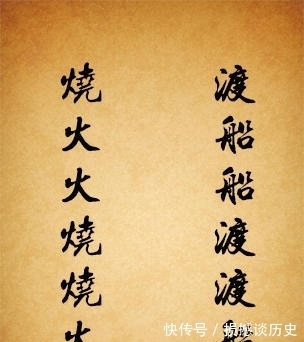 渡船船渡渡
燒火火燒燒
快传号 / 谈历史